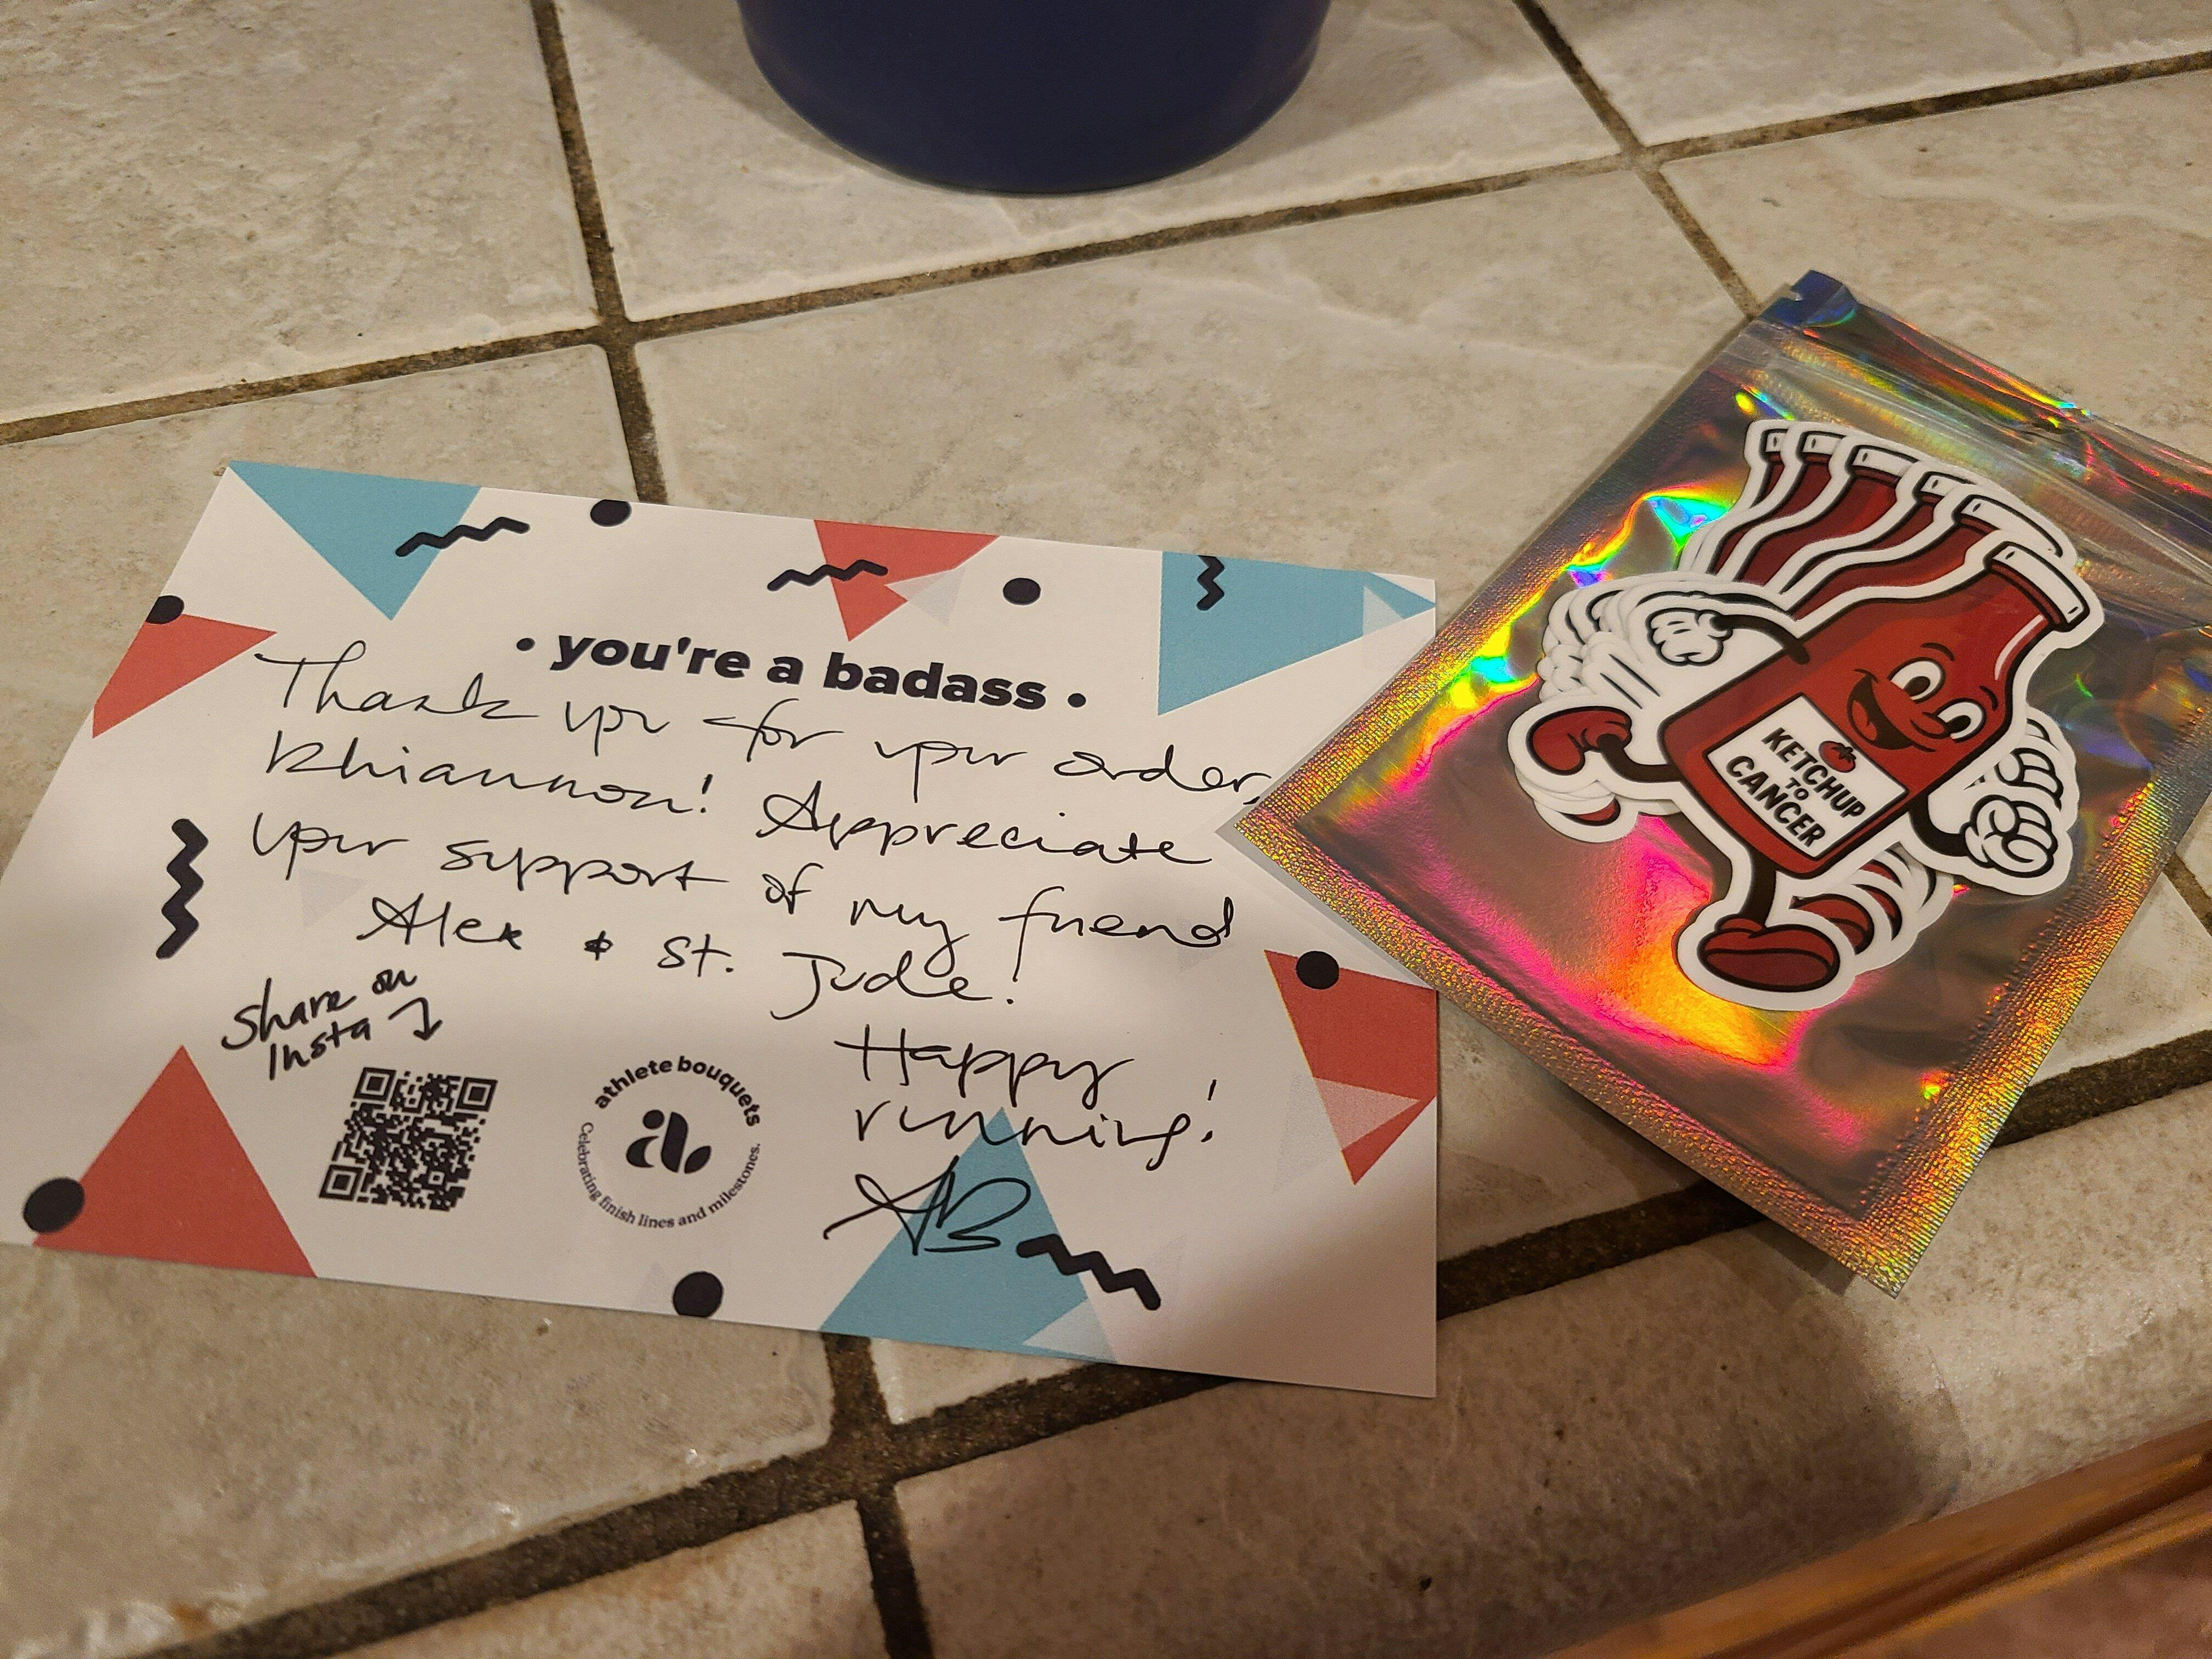 • you're a badass •
Thank you for your order,
Rhiannon! Appreciate
your support of my friend
Alex & St. Jude!
Happy
running!
AB
Share on
Insta
athlete bouquets
ab
Celebrating finish lines and milestones.
KETCHUP
TO
CANCER